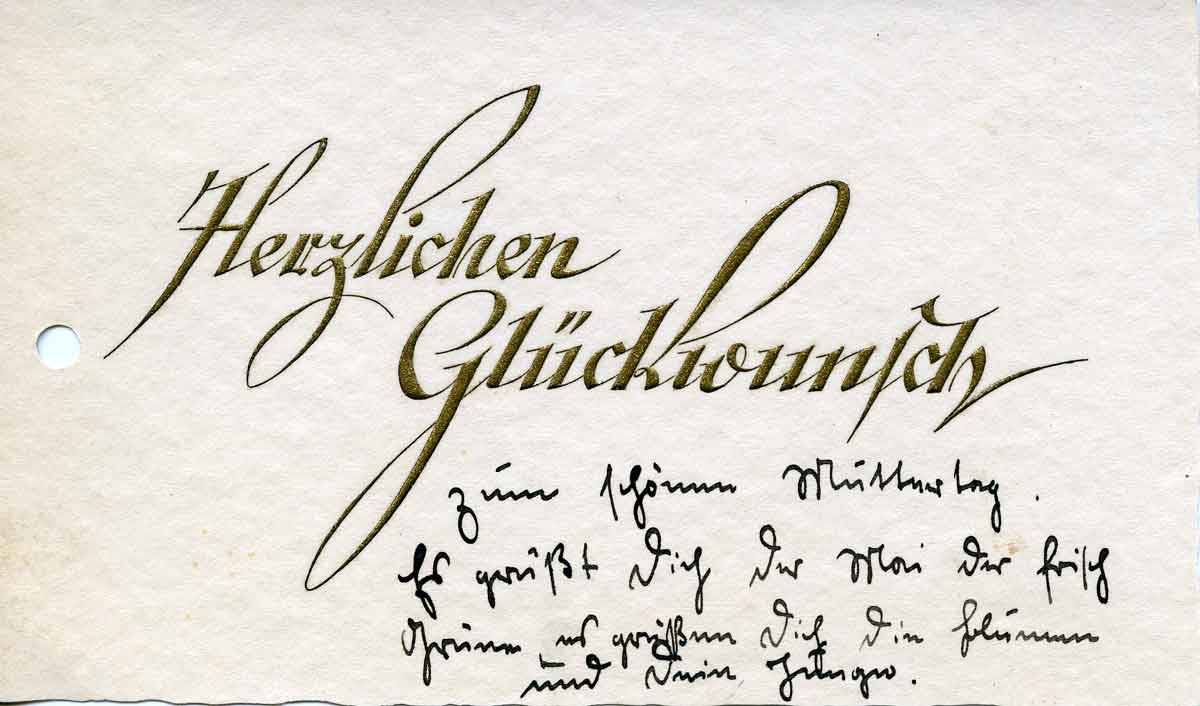 Herzlichen
Glückwunsch
zum schönen Muttertag.
Es grüßt Dich der Mai der frisch
Grüne, es grüßen Dich die Blumen
und Dein